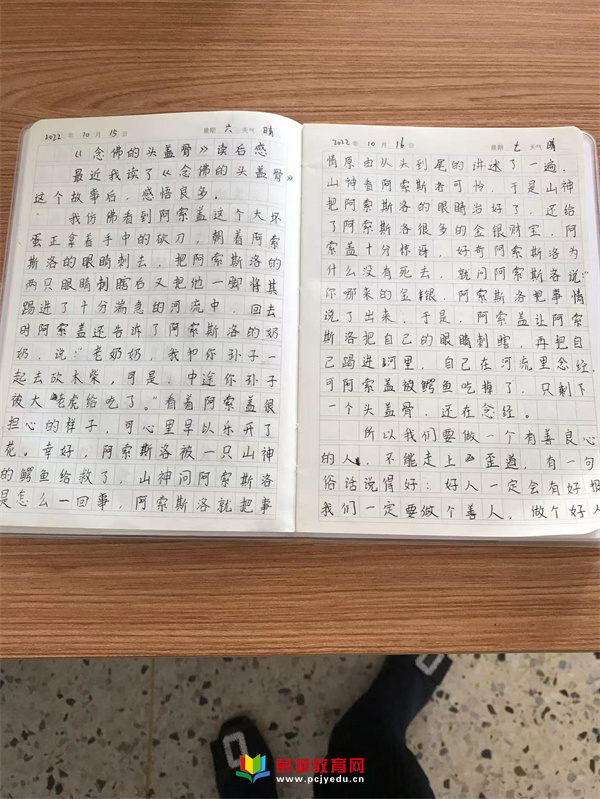 2022 年 10 月 15 日 星期 六 天气 晴
《念佛的头盖骨》读后感
最近我读了《念佛的头盖骨》
这个故事后，感悟良多。
我仿佛看到阿索盖这个大坏
蛋正拿着手中的砍刀，朝着阿索
斯洛的眼睛刺去，把阿索斯洛的
两只眼睛刺瞎后又把他一脚将其
踢进了十分湍急的河流中，回去
时阿索盖还告诉了阿索斯洛的奶
奶，说："老奶奶，我和你孙子一
起去砍木柴，可是，中途你孙子
被大老虎给吃了。"看着阿索盖很
担心的样子，可心里早以乐开了
花。幸好，阿索斯洛被一只山神
的鳄鱼给救了，山神问阿索斯洛
是怎么一回事，阿索斯洛就把事
2022 年 10 月 16 日 星期 七 天气 晴
情原由从头到尾的讲述了一遍，
山神看阿索斯者可怜，于是山神
把阿索斯洛的眼睛治好了，还给
了阿索斯洛很多的金银财宝，阿
索盖十分惊讶，好奇阿索斯洛为
什么没有死去，就问阿索斯洛说"
你哪来的金银，阿索斯洛把事情
说了出来，于是，阿索盖让阿索
斯洛把自己的眼睛刺瞎，再把自
己踢进河里，自己在河流里念经，
可阿索盖被鳄鱼吃掉了，只剩下
一个头盖骨，还在念经。
所以我们要做一个有善良心
的人，不能走上歪道，有一句
俗话说得好：好人一定会有好报
我们一定要做个善人，做个好人
彭城教育网
www.pcjyedu.cn